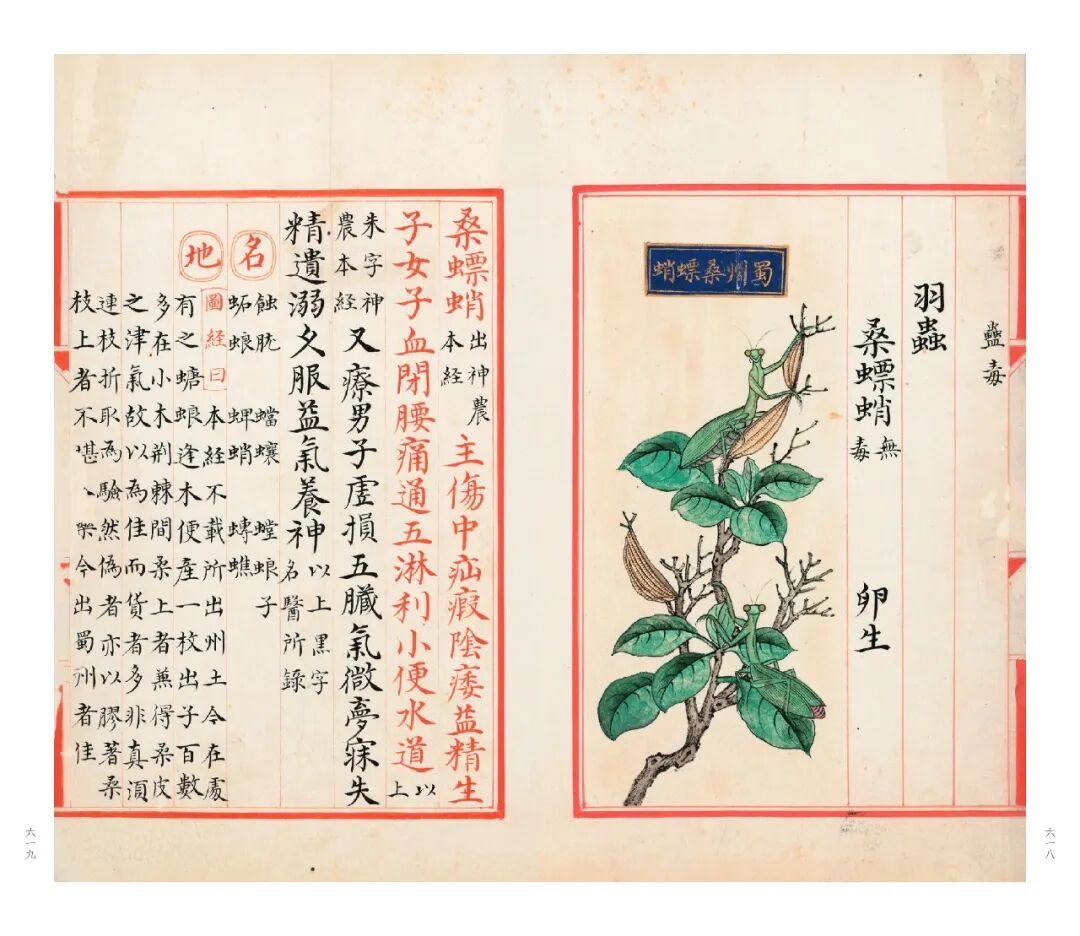 蠱毒
羽蟲
桑螵蛸無毒　卵生
蜀州桑螵蛸
六一八
桑螵蛸出神農本經主傷中疝瘕陰痿益精生
子女子血閉腰痛通五淋利小便水道以上
朱字神農本經又療男子虛損五臟氣微夢寐失
精遺溺久服益氣養神以上黑字名醫所錄
名　蝕肬　蟷蠰　螳蜋子
蚝蜋　蜱蛸　蟳蟭
地　圖經曰本經不載所出州土今在處
有之螗蜋逢木便產一枚出子百數
多在小木荊棘間桑上者兼得桑皮
之津氣故以為佳而貨者多非真須
連枝折取為驗然偽者亦以膠著桑
枝上者不堪入藥今出蜀州者佳
六一九